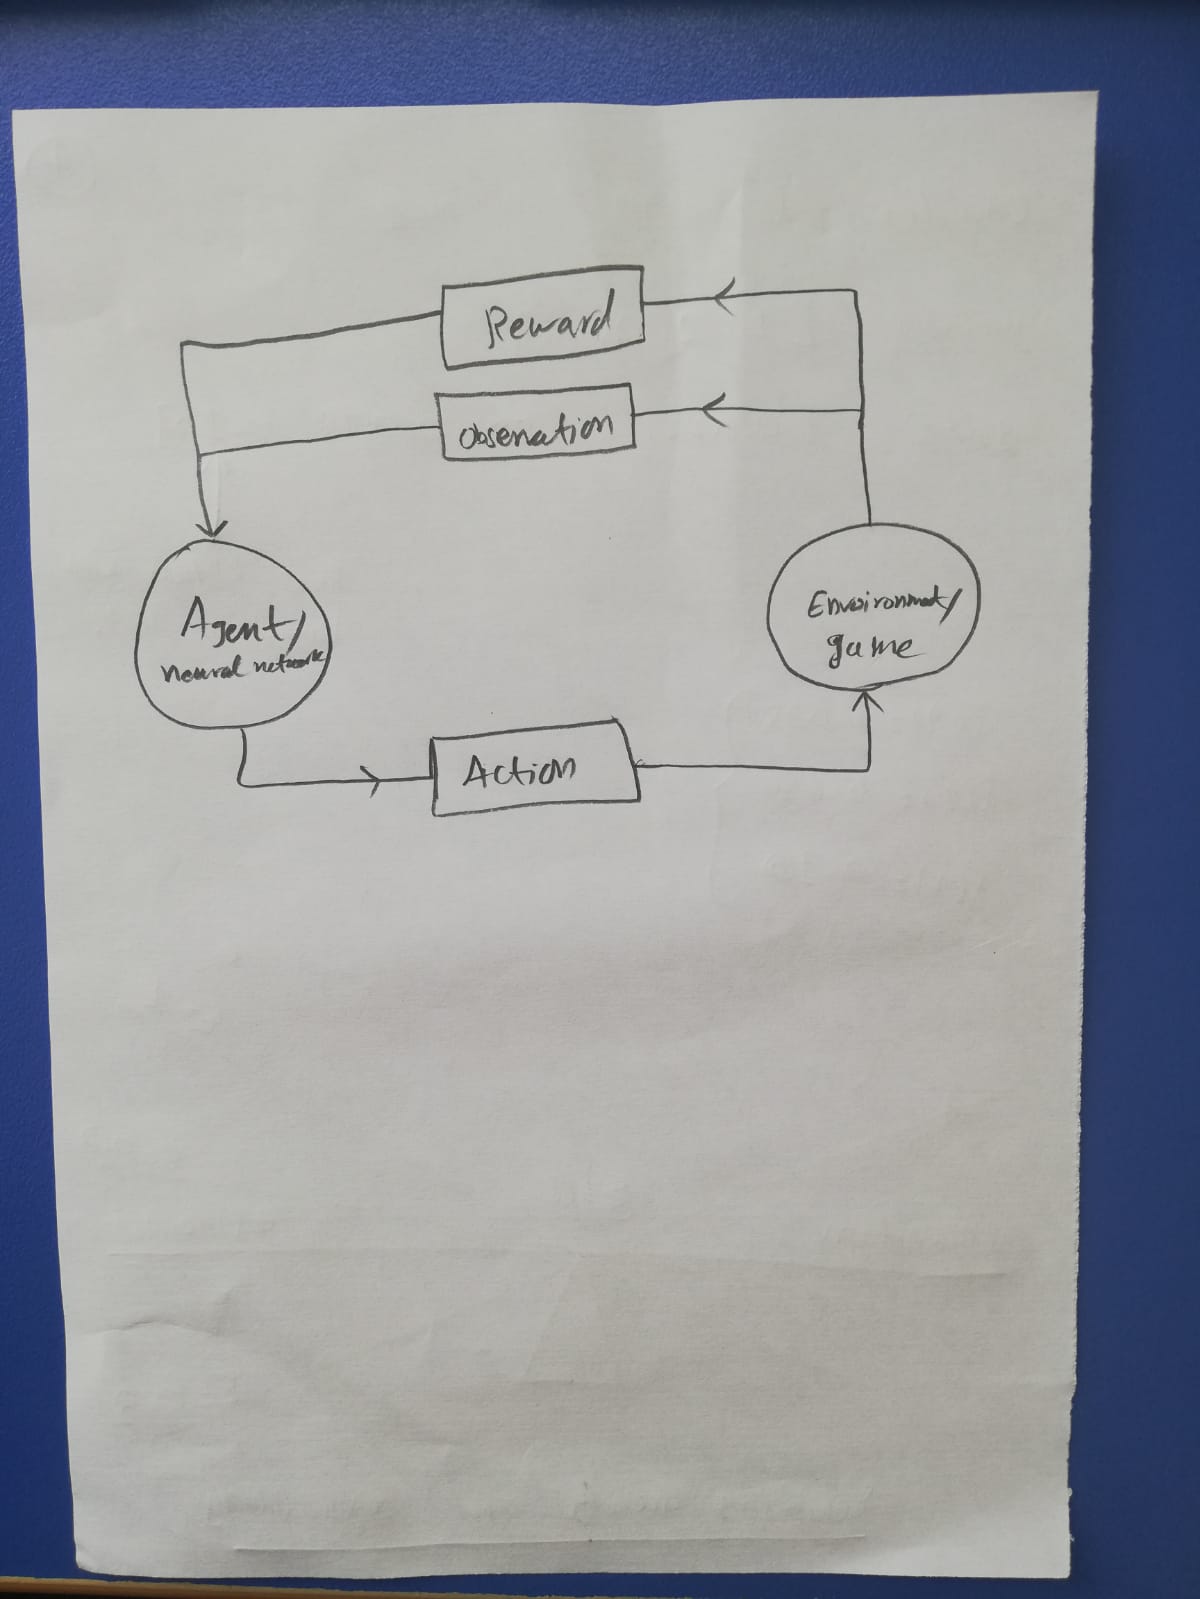 Reward
Observation
Agent/
neural network
Environment/
game
Action